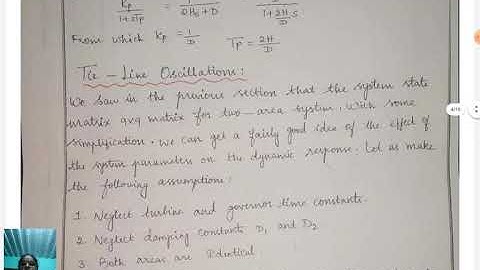 Kp / 1+sTp = 1 / 2Hs+D = 1/D / 1+2H/D s
From which Kp = 1/D Tp = 2H/D
Tie-Line Oscillations:
We saw in the previous section that the system state
matrix 9x9 matrix for two-area system. With some
simplification, we can get a fairly good idea of the effect of
the system parameters on the dynamic response. Let us make
the following assumptions:
1. Neglect turbine and governor time constants.
2. Neglect damping constants D1 and D2
3. Both areas are identical